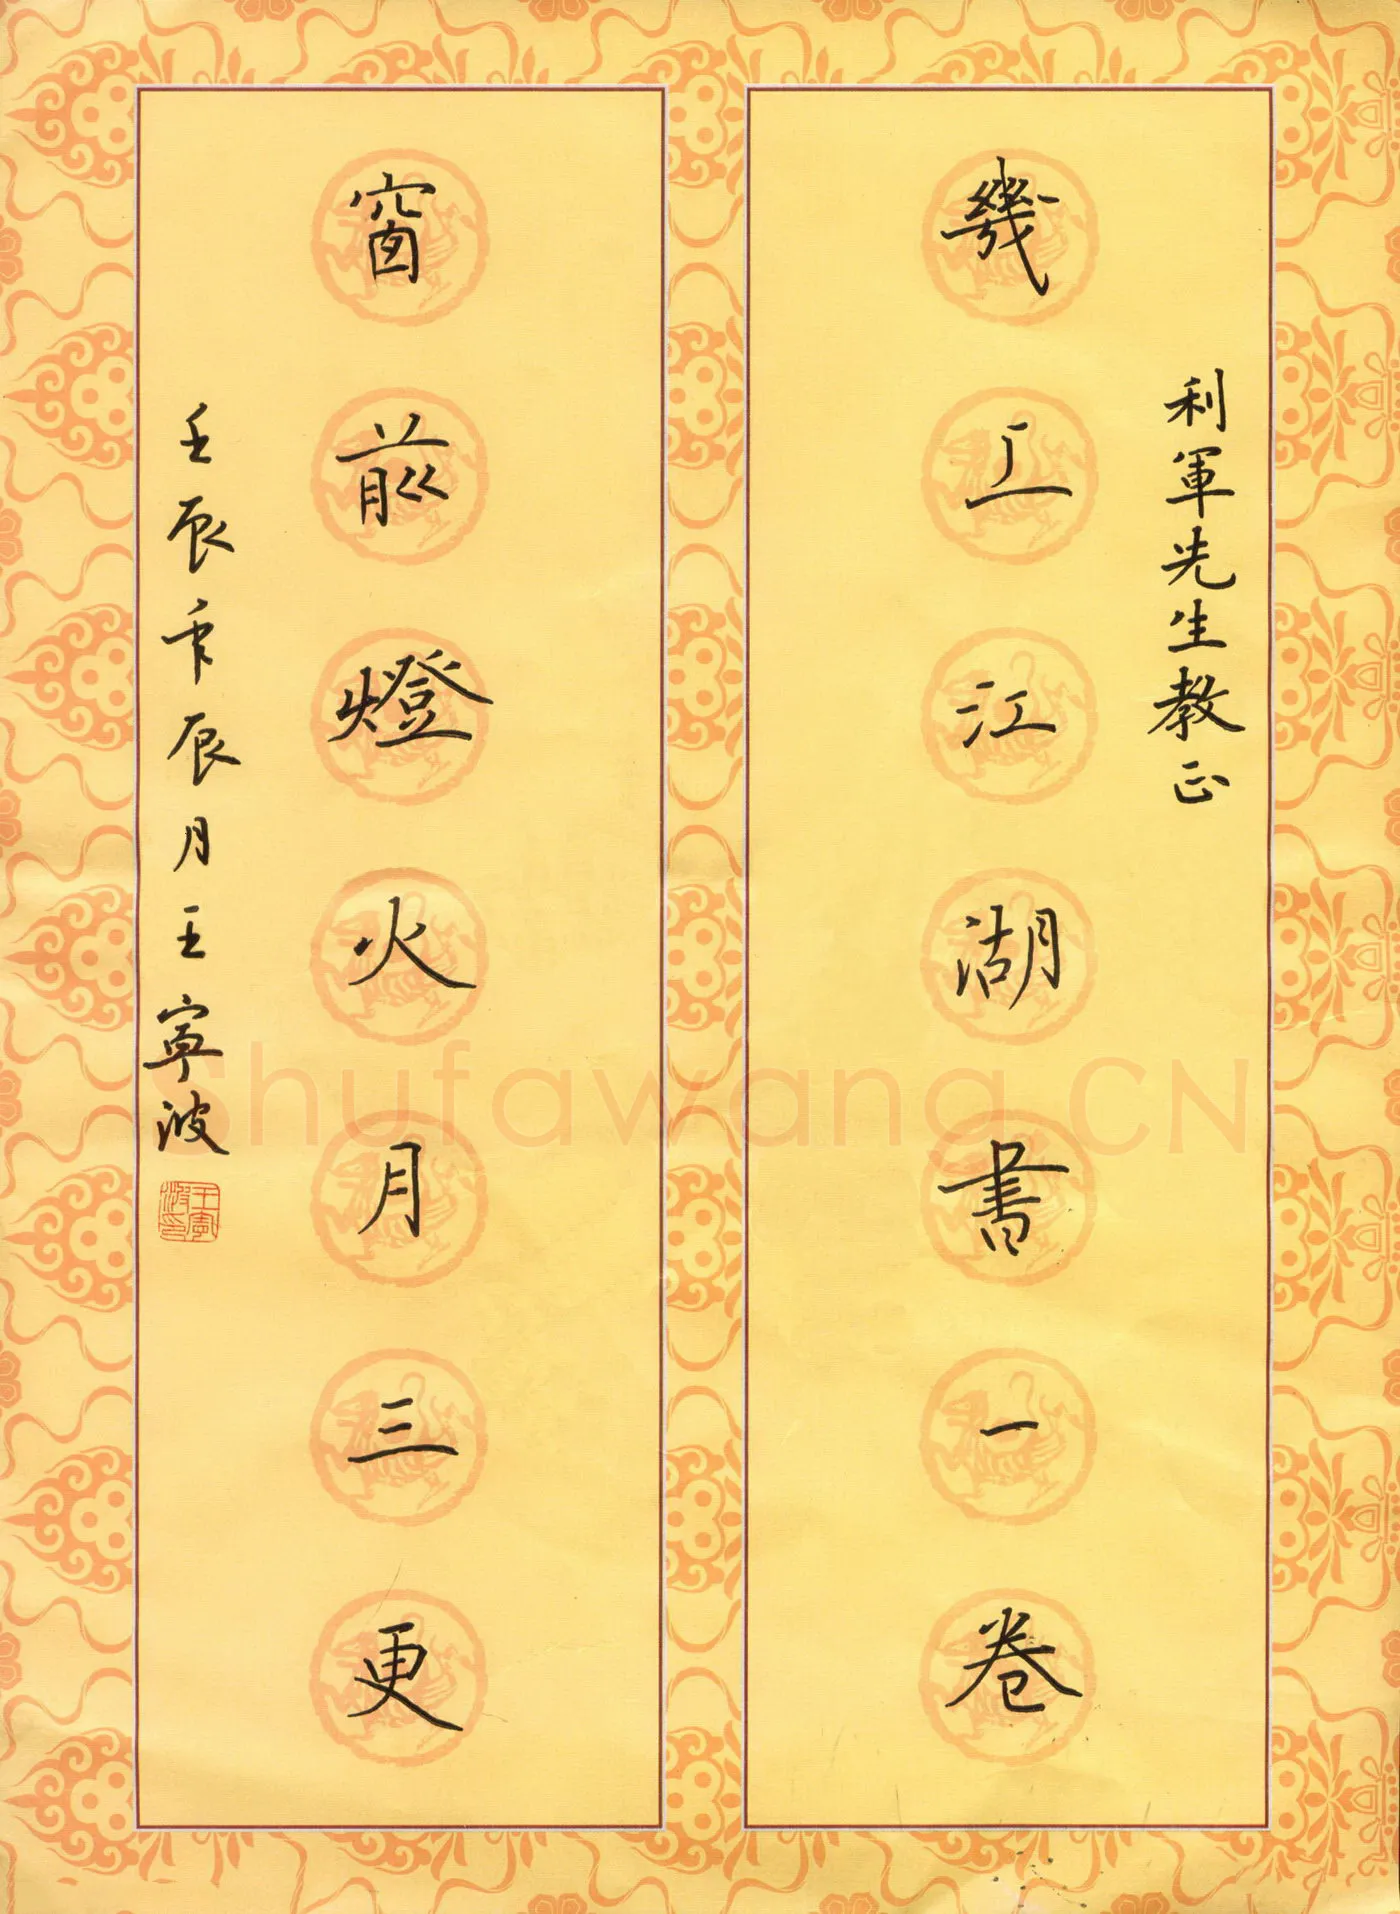 利軍先生教正
幾上江湖書一卷
窗前燈火月三更
壬辰年辰月王寧波
王寧波印
Shufawang.CN